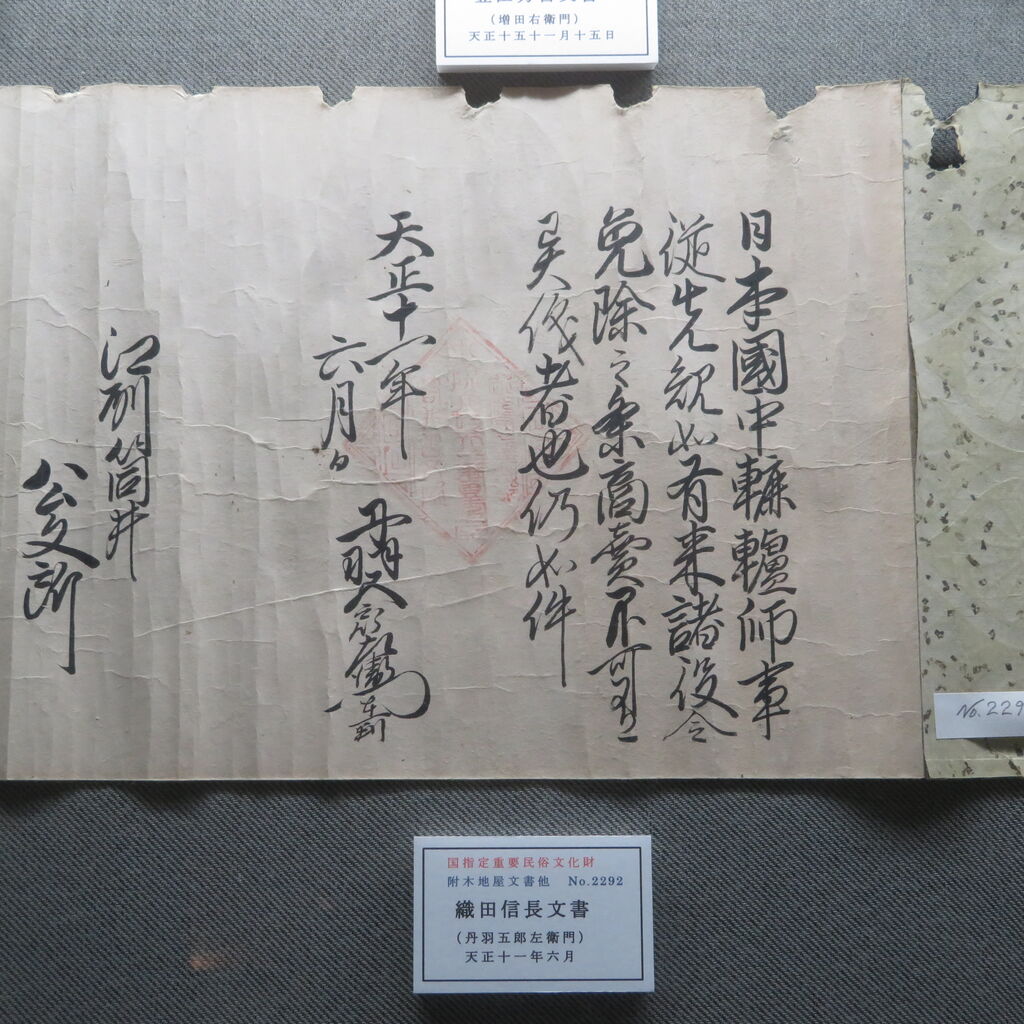 (増田右衛門)
天正十五十一月十五日
日本國中轆轤師事
従先規如有来諸役令
免除之条商賣不可有
異儀者也仍如件
天正十一年
六月日
丹羽
江州筒井
公文所
No.229
国指定重要民俗文化財
附木地屋文書他 No.2292
織田信長文書
(丹羽五郎左衛門)
天正十一年六月